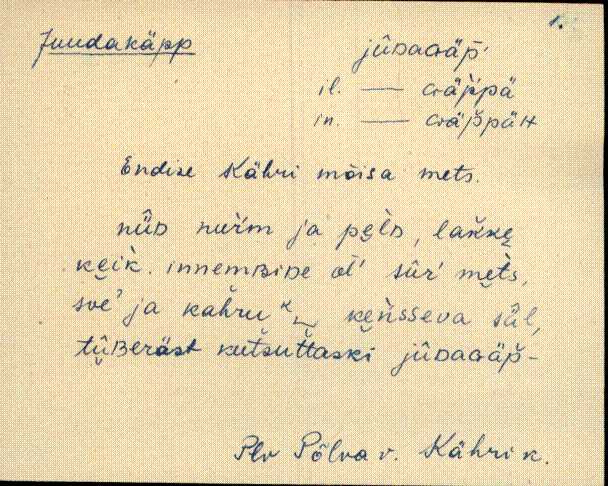 1.
Juudakäpp jûᴅaɢäp̌'
il. — ɢäp̌pä
in. — ɢäp̌päH
Endise Kähri mõisa mets.
nûᴅ nuŕm ja pe̮lᴅ, lak̆ke̮
ke̮ik. innemʙiᴅe ol' sûŕ me̮ts,
soe' ja kahru ke̮ǹsseva sä̂l,
tûʙeräst kut̆sut̆taski jûᴅaɢäp̌-
Plv Põlva v. Kähri k.